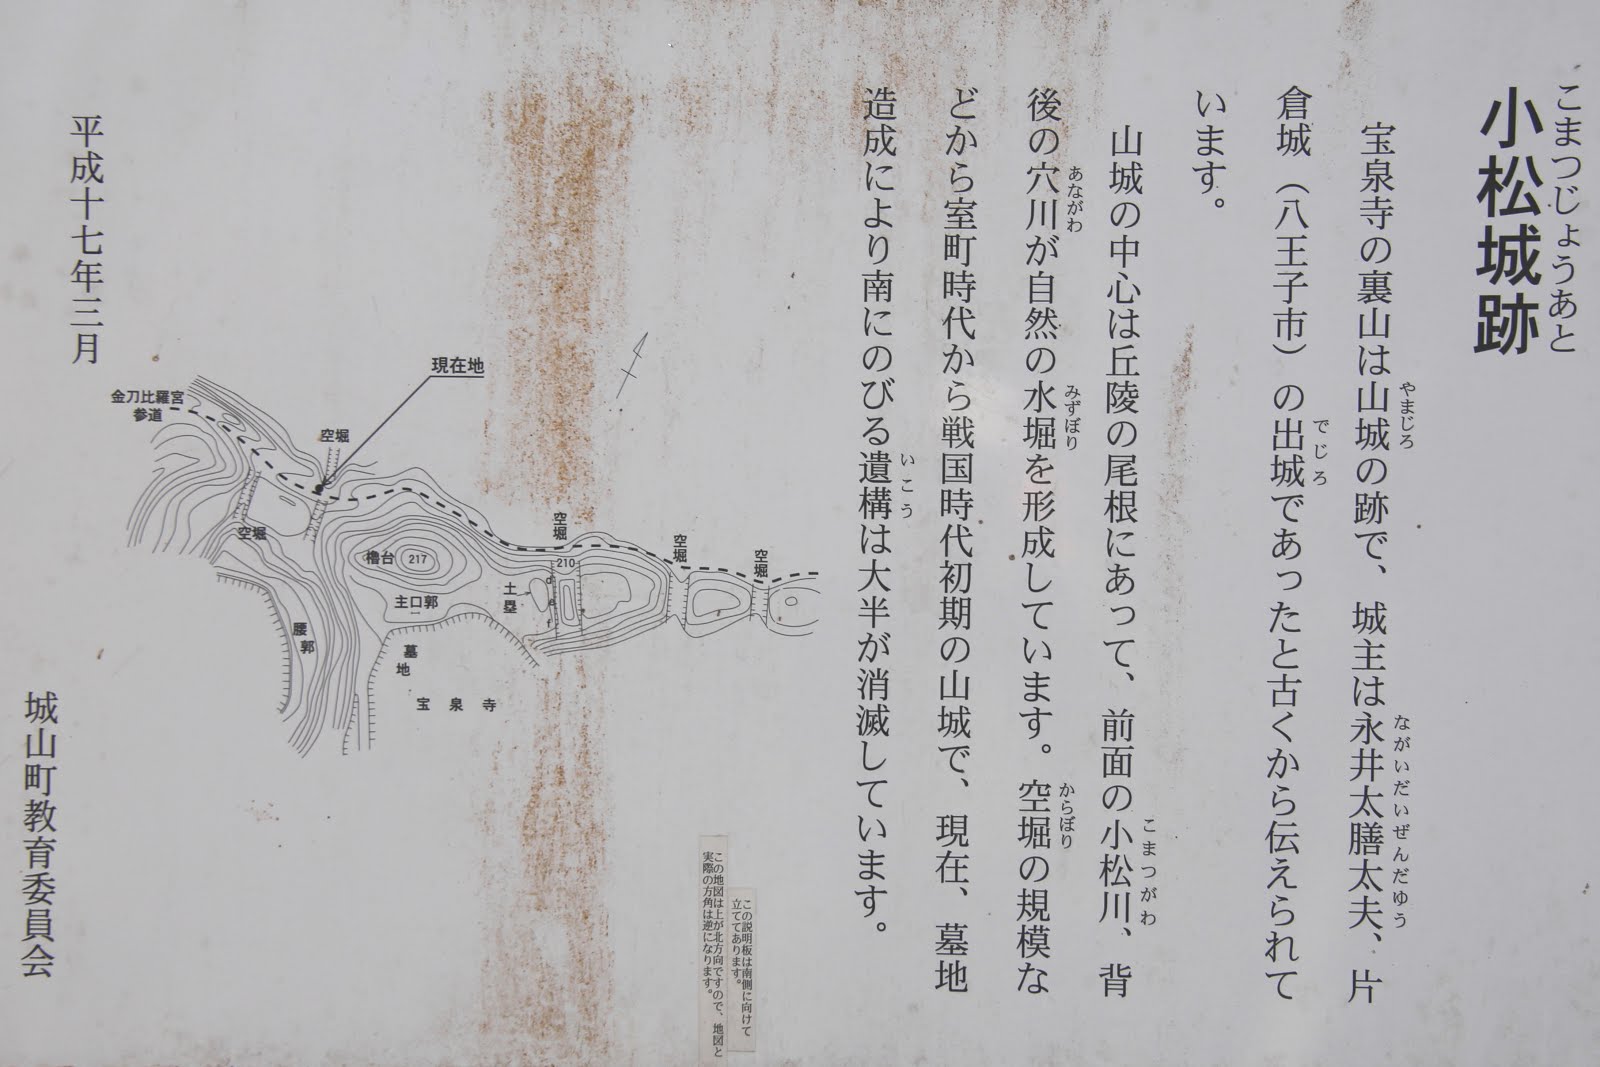 こまつじょうあと
小松城跡
宝泉寺の裏山は山城の跡で、城主は永井太膳太夫、片
やまじろ
ながいだいぜんだゆう
倉城（八王子市）の出城であったと古くから伝えられて
でじろ
います。
山城の中心は丘陵の尾根にあって、前面の小松川、背
こまつがわ
後の穴川が自然の水堀を形成しています。空堀の規模な
あながわ
みずぼり
からぼり
どから室町時代から戦国時代初期の山城で、現在、墓地
造成により南にのびる遺構は大半が消滅しています。
いこう
この説明板は南側に向けて
立ててあります。
この地図は上が北方向ですので、地図と
実際の方角は逆になります。
現在地
金刀比羅宮
参道
空堀
空堀
空堀
空堀
空堀
櫓台
217
210
主口郭
土塁
d
e
f
腰郭
墓地
宝泉寺
平成十七年三月
城山町教育委員会